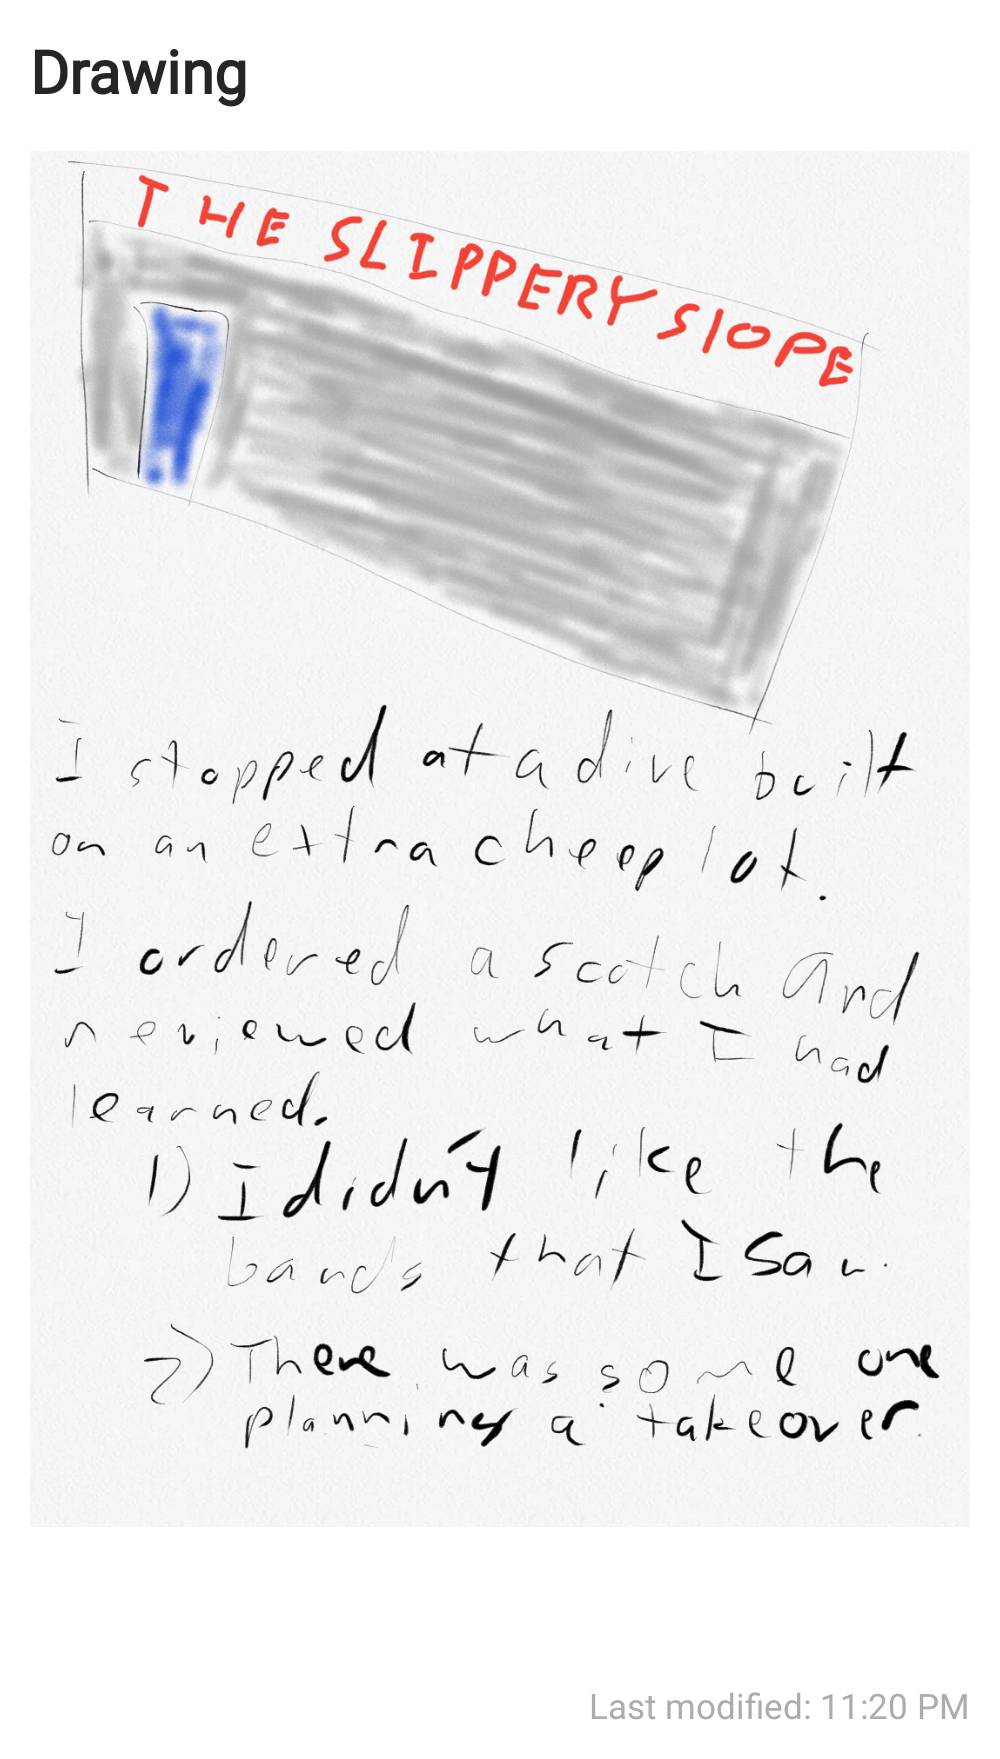 Drawing
THE SLIPPERY SlOPE
I stopped at a dive built
on an extra cheep lot.
I ordered a scotch and
reviewed what I had
learned.
1) I didn't like the
bands that I saw.
2) There was some one
planning a takeover.
Last modified: 11:20 PM